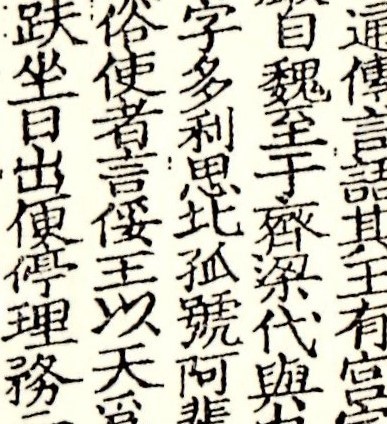 通傳言語其王有宮
自魏至于齊梁代與
字多利思比孤號阿輩
俗使者言俀王以天爲
趺坐日出便停理務